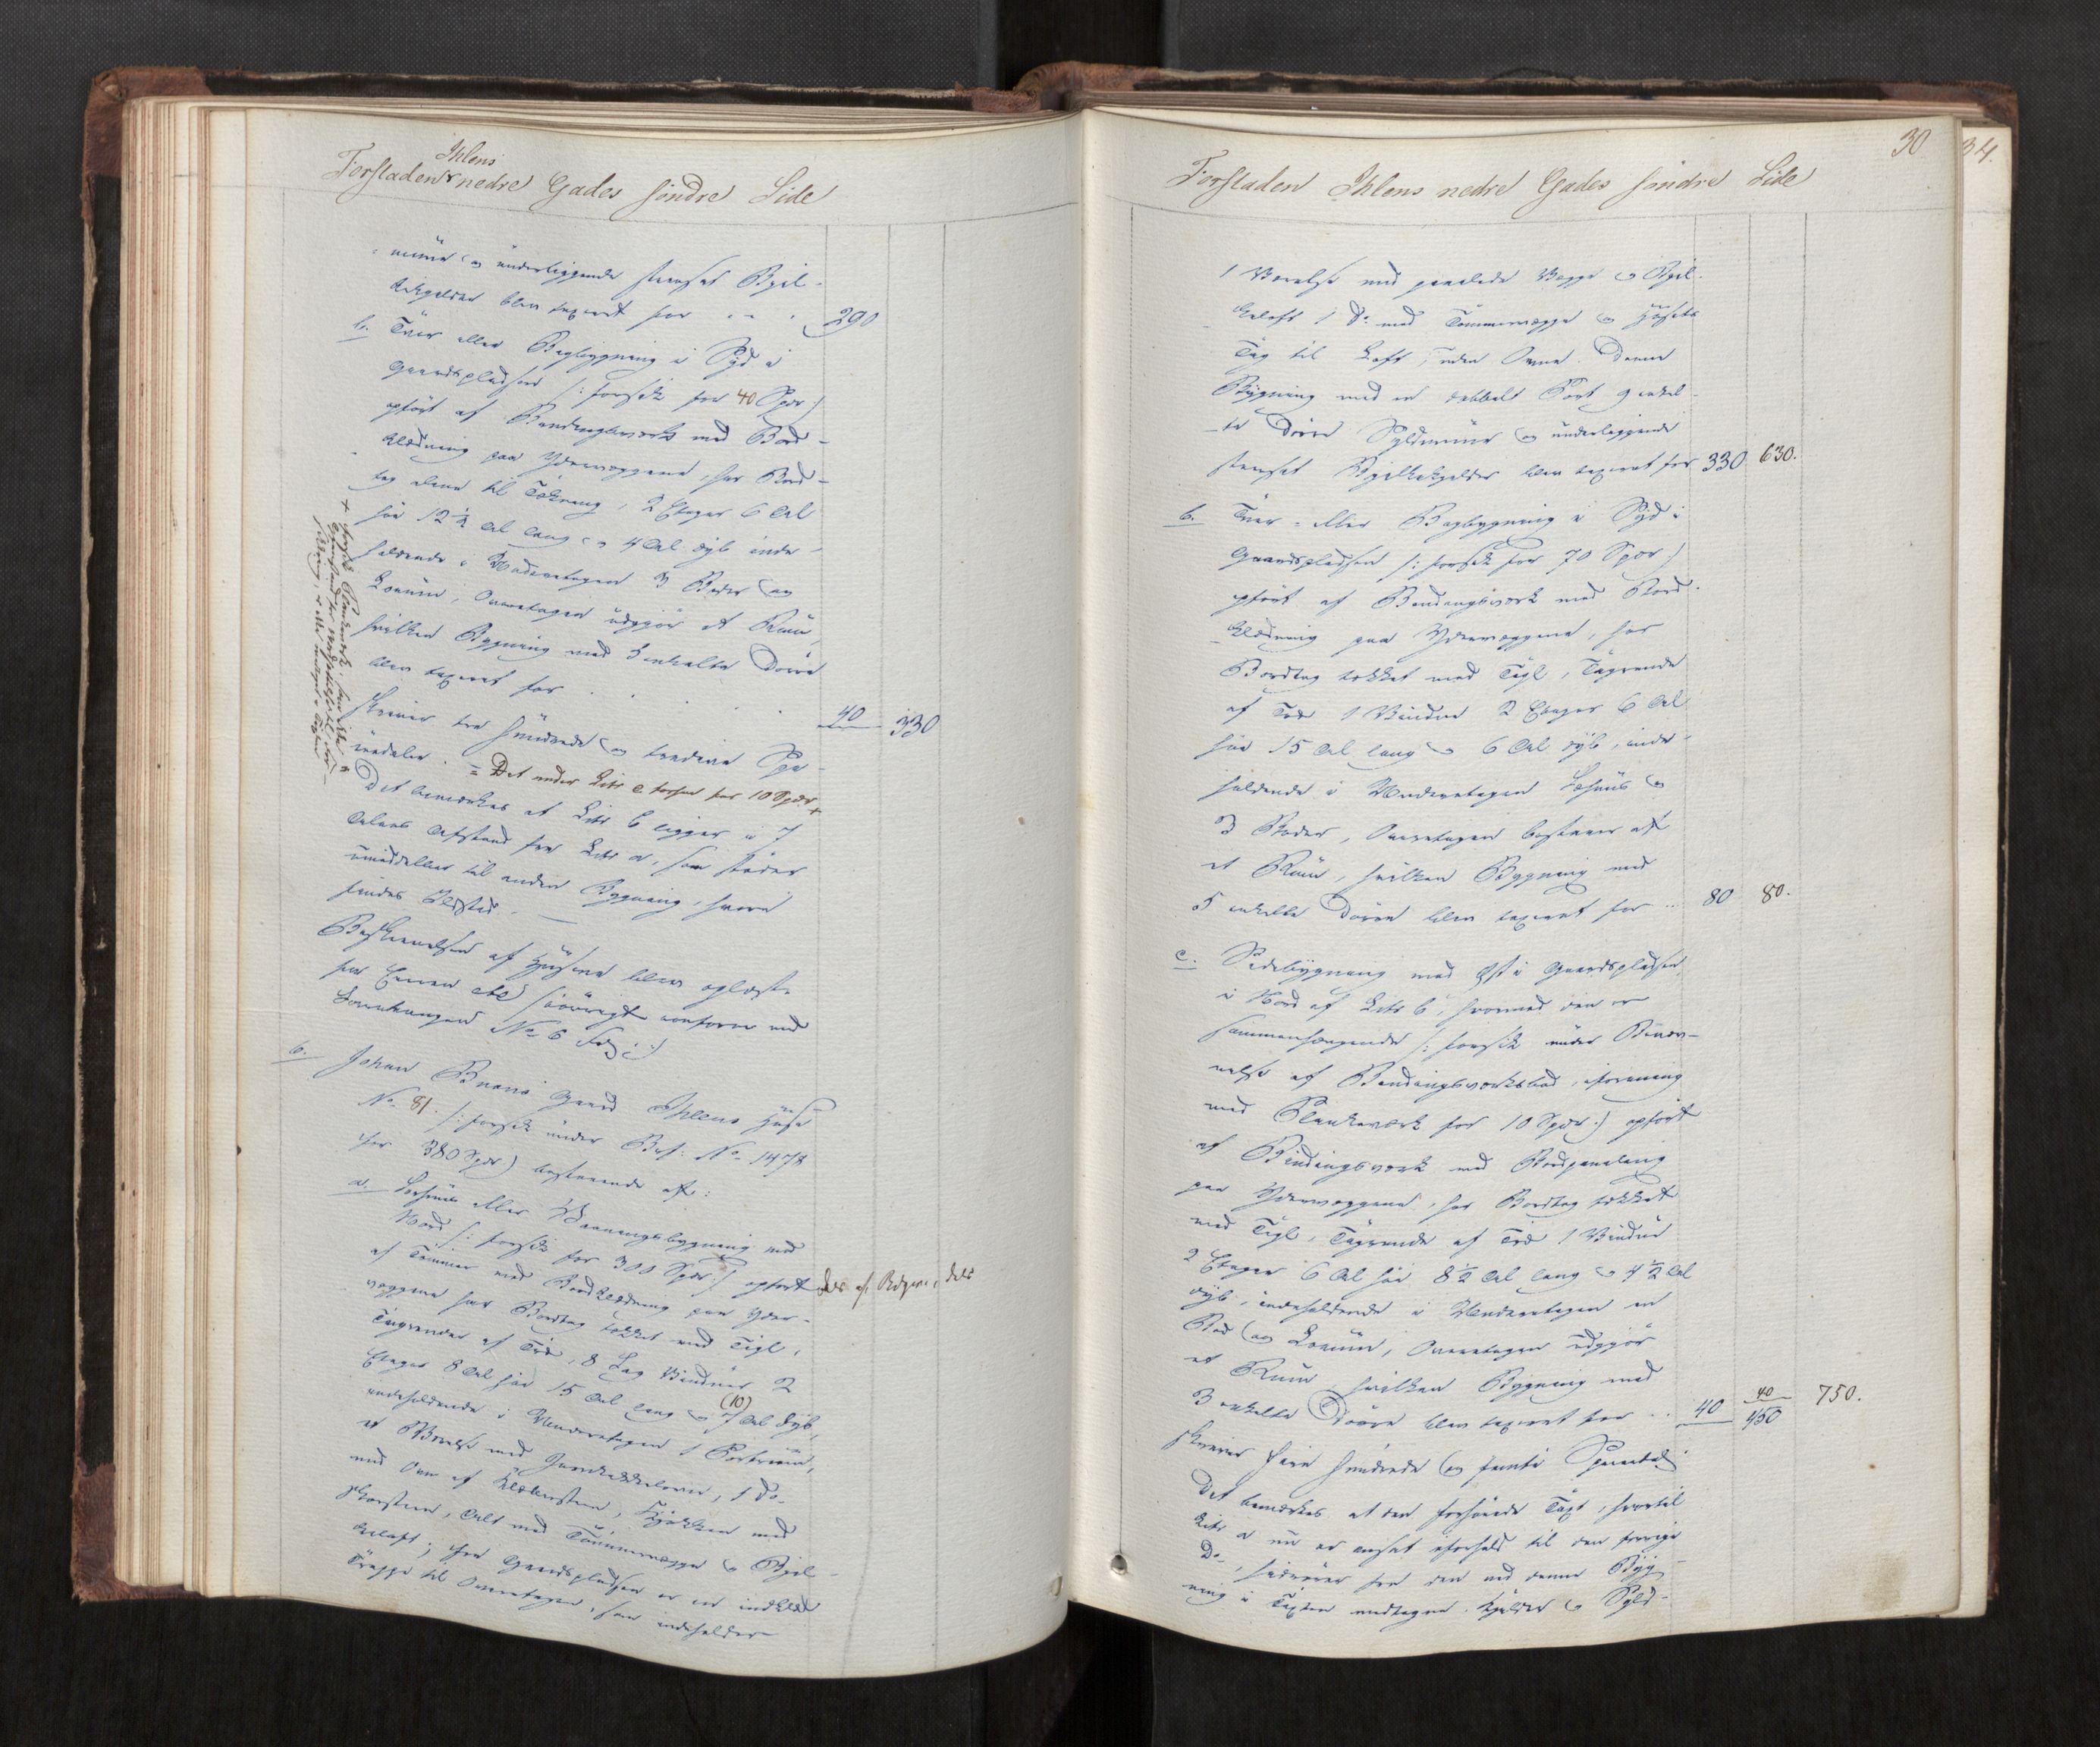 Ihlens
Forstaden nedre Gades söndre Side
muur og underliggende steensat Bjel-
kekjelder blev taxeret for " " " 290
b. Tvær eller Bagbygning i Syd i
Gaardspladsen /: forsik for 40 Spdr :/
opført af Bindingsværk med Bord-
klædning paa Ydervæggene, har Bord-
tag til Tækning, 2 Etager 6 Al
høi 12½ Al lang og 4 Al dyb inde-
holdende i Underetagen 3 Boder og
Locum, Overetagen udgjør et Ruum,
hvilken Bygning med 3 enkelte Dørre
blev taxeret for . . . . 40 330
skriver tre hundrede og tredive Spe-
ciedaler. = Det under Litr c forsik for 10 Spdr +
Det bemærkes at Litr b ligger i 7
Alens Afstand fra Litr a, som støder
umiddelbar til anden Bygning, hvori
findes Ildsted. —
Beskrivelsen af Huusene blev oplæst
for Eieren etc iøvrigt conform med
Løvetangen No 6
6. Johan Gaard Ihlens Huse
No 81. /: forsik under Bes: No 1478
for 380 Spdr) bestaaende af:
a. Forhuus eller Vaaningsbygning mod
Nord /: forsik for 300 Spdr :/ opført
af Tømmer med Bordklædning paa Yder-
væggene har Bordtag tækket med Tegl,
Tagrender af Træ, 8 Fag Vinduer 2
Etager 8 Al høi 15 Al lang og 7 (10) Al dyb,
indeholdende i Underetagen 1 Portruum,
et Værelse med Jernkakkelovn, 1 Do
med Ovn af Klæbersteen, Kjøkken med
Skorsteen, Alt med Tømmervægge og Bjel-
keloft; fra Gaardspladsen er en indklædt
Trappe til Overetagen, som indeholder
30
34.
Forstaden Ihlens nedre Gades söndre Side
1 Værelse med panelede Vægge og Bjel-
keloft 1 Do med Tømmervægge og Husets
Tag til Loft, uden Ovne. Denne
Bygning med en dobbelt Port 9 enkel-
te Dørre Syldmuur og underliggende
steensat Bjelkekjelder blev taxeret for 330 630.
b. Tvær- eller Bagbygning i Syd i
Gaardspladsen /: forsik for 70 Spdr :/
opført af Bindingsværk med Bord-
klædning paa Ydervæggene, har
Bordtag tækket med Tegl, Tagrende
af Træ 1 Vindue 2 Etager 6 Al
høi 15 Al lang og 6 Al dyb, inde-
holdende i Underetagen Fæhuus og
3 Boder, Overetagen bestaaer af
et Ruum, hvilken Bygning med
5 enkelte Dørre blev taxeret for .. 80 80.
c. Sidebygning mod Øst i Gaardspladsen,
i Nord af Litr b, hvormed den er
sammenhængende /: forsik under Benæv-
nelse af Bindingsværksbod, iforening
med Plankeværk for 10 Spdr :) opført
af Bindingsværk med Bordpaneling
paa Ydervæggene, har Bordtag tækket
med Tegl, Tagrende af Træ 1 Vindue
2 Etager 6 Al høi 8½ Al lang og 4½ Al
dyb, indeholdende i Underetagen en
Bod og Locum, Overetagen udgjør
et Ruum, hvilken Bygning med
3 enkelte Dørre blev taxeret for .. 40 40 750.
450
skriver fire hundrede og femti Speciedl
Det bemærkes at den forhøiede Taxt, hvortil
Litr a nu er ansat iforhold til den forrige
Do, hidrører fra den ved denne Byg-
ning i Taxten medtagne Kjelder og Syld-